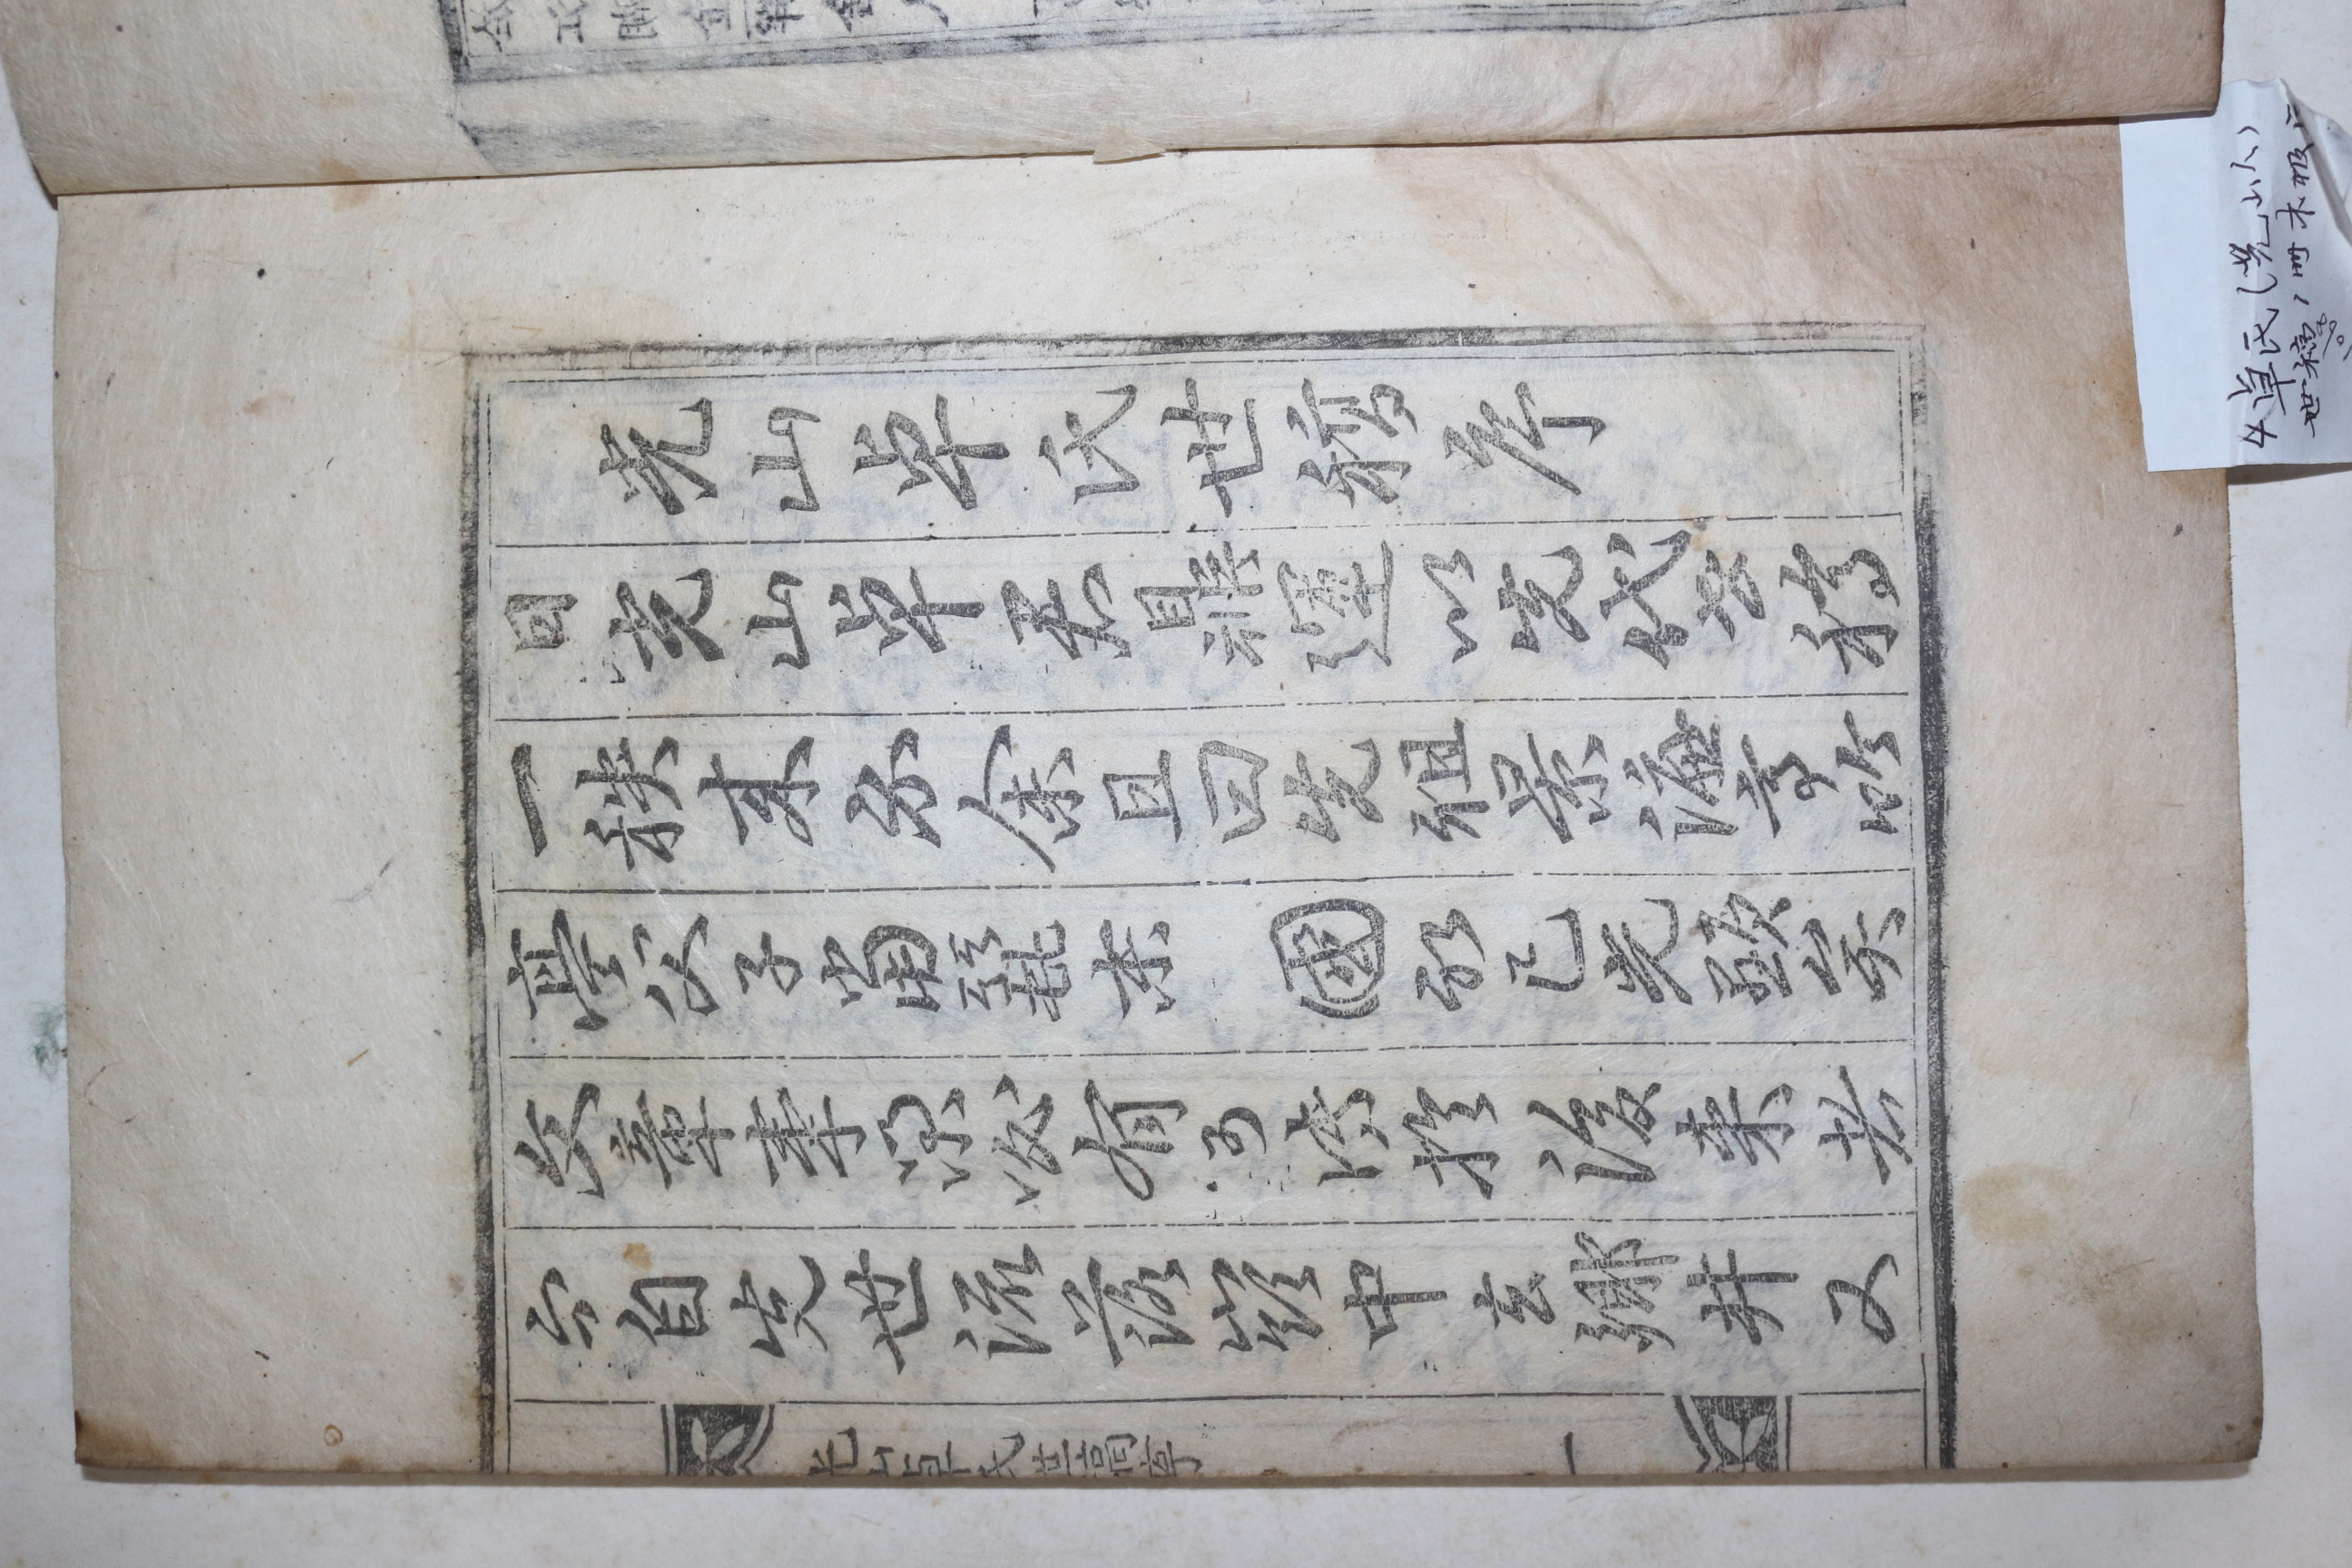 光山卓氏世稿序
日光山卓君鼎運以先代世稿
一秩来示余且曰先祖景濂亭竹
亭父子當麗末 國初已光顯矣
文章事業必有可傳於後来者
而自先世流落嶺中去鄉井又
光山卓氏世稿序 一
4 卓氏(光山人)
世稿 1冊 木板